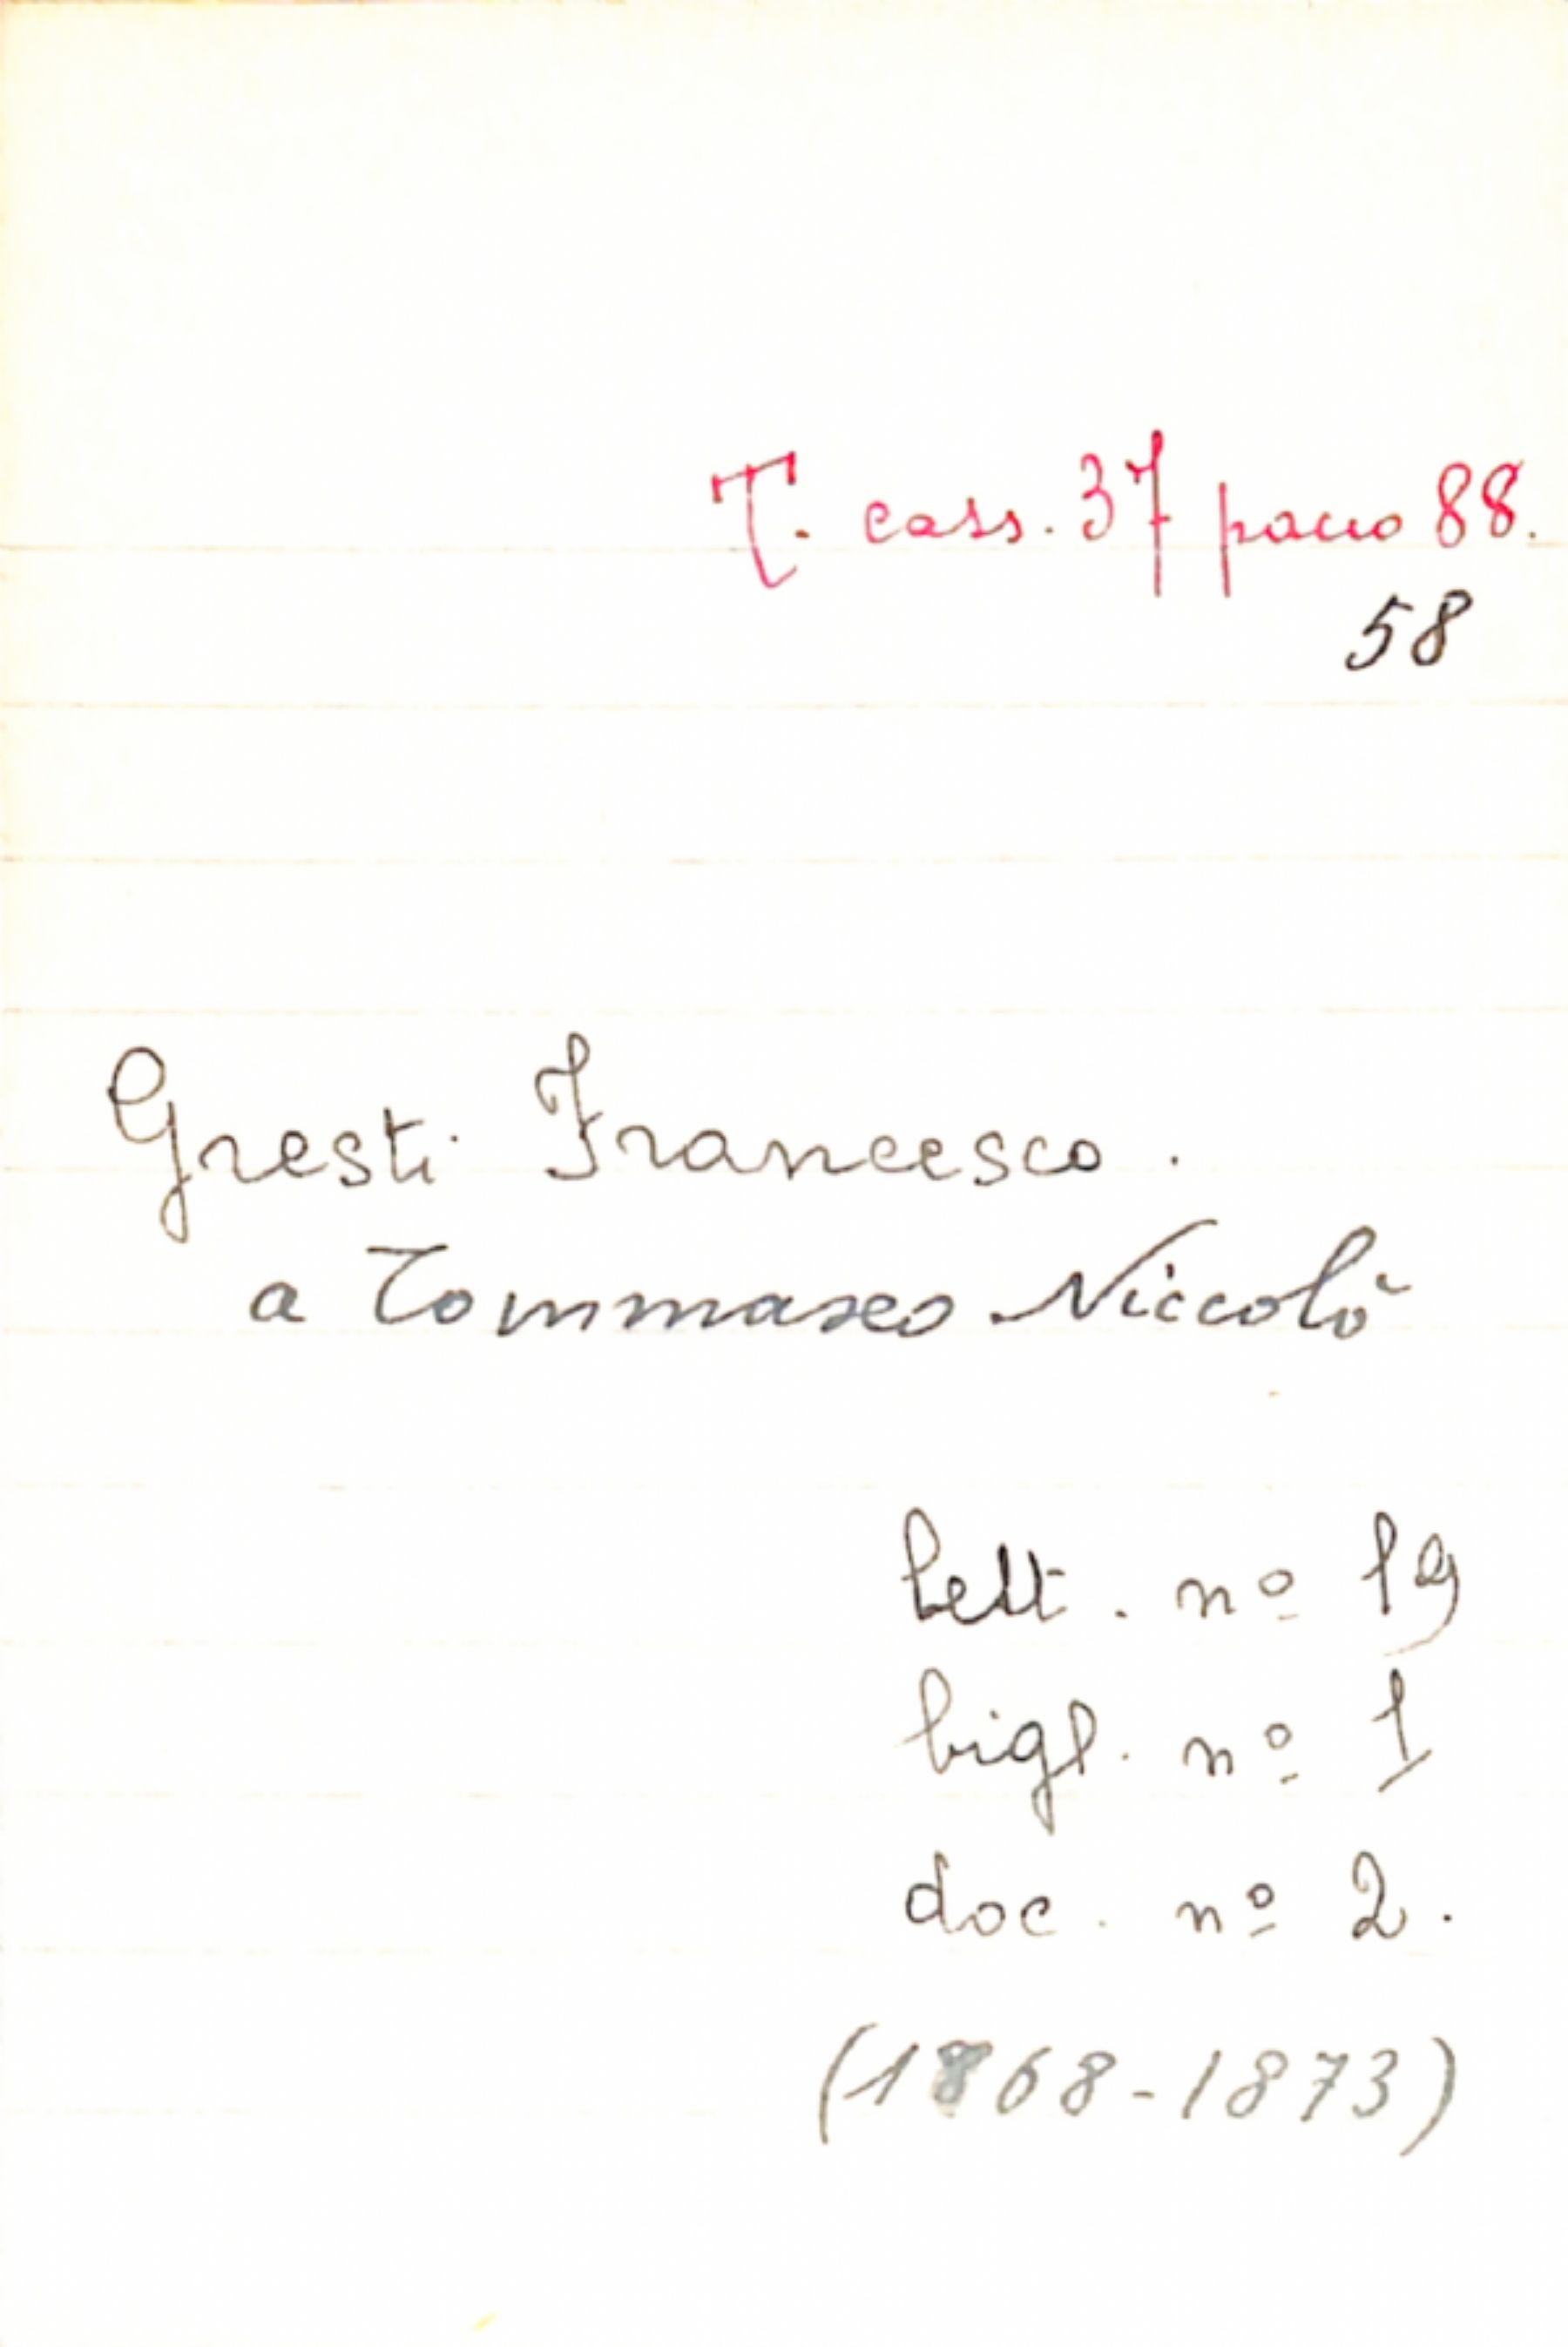 T. cass. 37 pacco 88.
58
Gresti Francesco.
a Tommaseo Niccolò
lett. nº 19
bigl. nº 1
doc. nº 2.
(1868-1873)